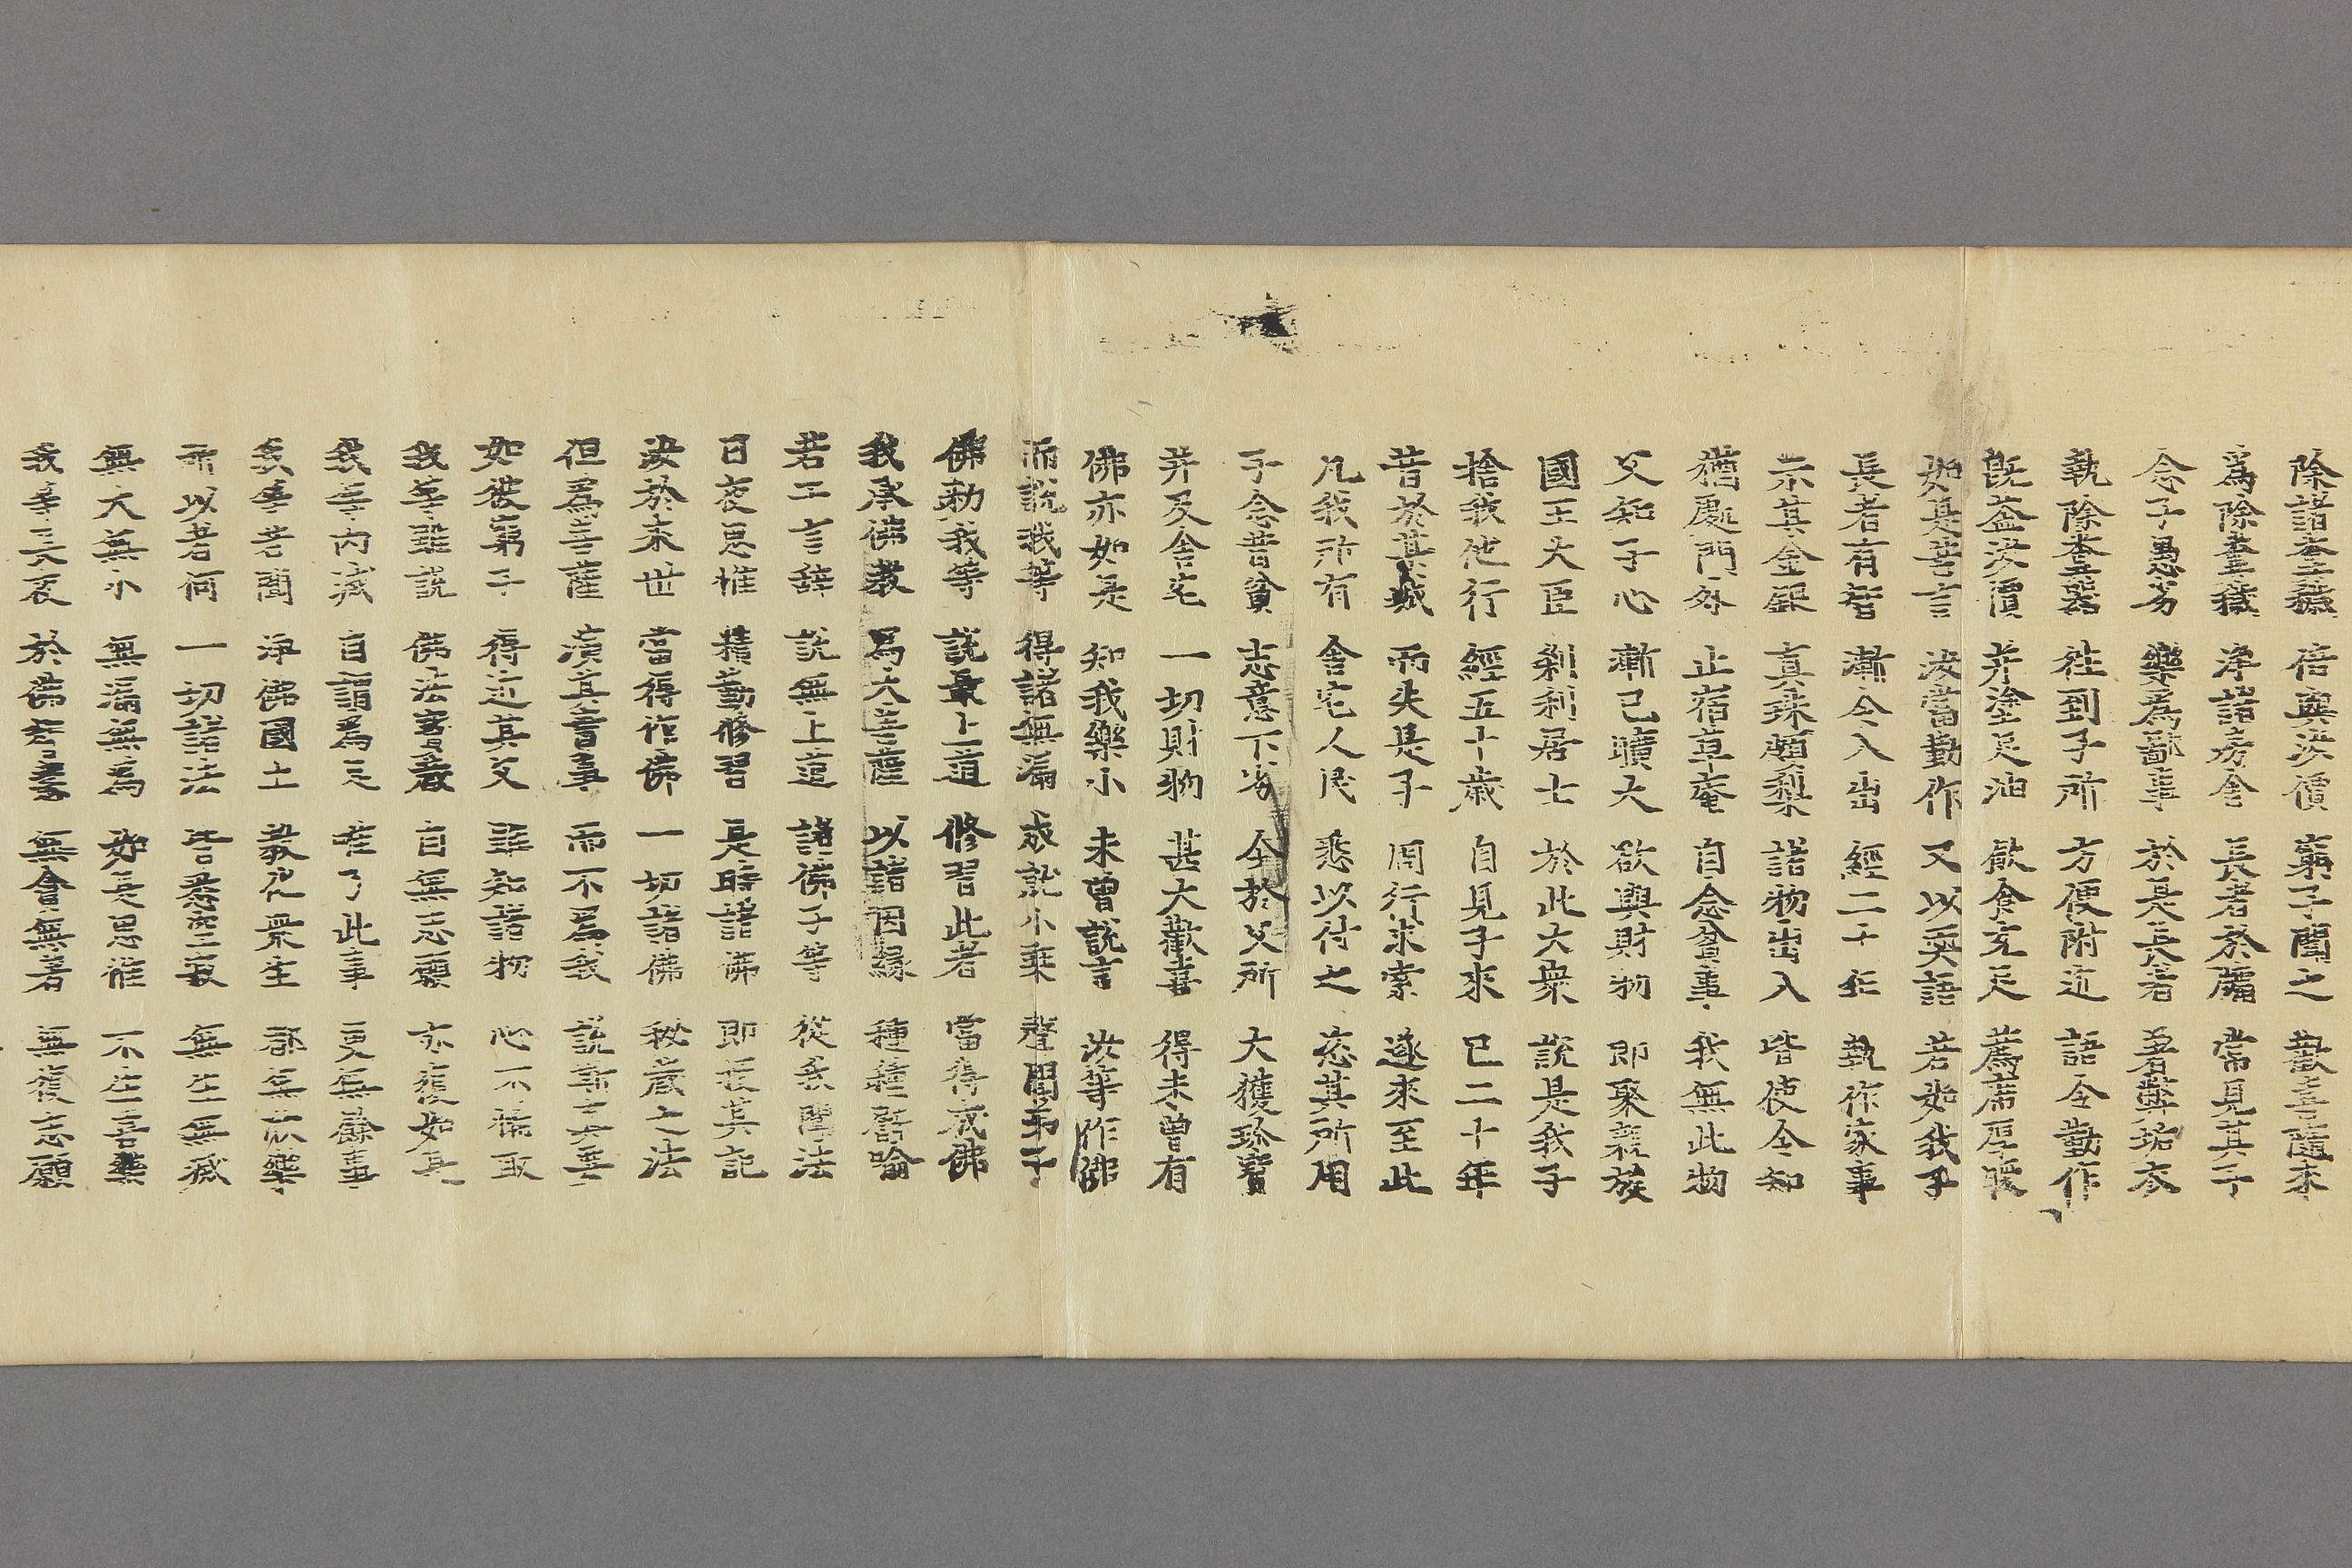 除諸糞穢 倍與汝價 窮子聞之 歡喜隨來
爲除糞穢 淨諸房舍 長者於牖 常見其子
念子愚劣 樂爲鄙事 於是長者 著弊垢衣
執除糞器 往到子所 方便附近 語令勤作
既益汝價 并塗足油 飲食充足 薦席厚暖
如是苦言 汝當勤作 又以耎語 若如我子
長者有智 漸令入出 經二十年 執作家事
示其金銀 真珠頗梨 諸物出入 皆使令知
猶處門外 止宿草庵 自念貧事 我無此物
父知子心 漸已曠大 欲與財物 即聚親族
國王大臣 刹利居士 於此大衆 説是我子
捨我他行 經五十歲 自見子來 已二十年
昔於某城 而失是子 周行求索 遂來至此
凡我所有 舍宅人民 悉以付之 恣其所用
子念昔貧 志意下劣 今於父所 大獲珍寶
并及舍宅 一切財物 甚大歡喜 得未曾有
佛亦如是 知我樂小 未曾説言 汝等作佛
而説我等 得諸無漏 成就小乗 聲聞弟子
佛勅我等 説最上道 修習此者 當得成佛
我承佛教 爲大菩薩 以諸因緣 種種譬喻
若干言辭 説無上道 諸佛子等 從我聞法
日夜思惟 精勤修習 是時諸佛 即授其記
汝於來世 當得作佛 一切諸佛 秘藏之法
但爲菩薩 演其實事 而不爲我 説斯真要
如彼窮子 得近其父 雖知諸物 心不希取
我等雖説 佛法寶藏 自無志願 亦復如是
我等内滅 自謂爲足 唯了此事 更無餘事
我等若聞 淨佛國土 教化衆生 都無欣樂
所以者何 一切諸法 皆悉空寂 無生無滅
無大無小 無漏無爲 如是思惟 不生喜樂
我等長夜 於佛智慧 無貪無著 無復志願